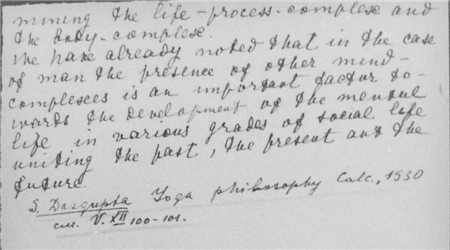 mining the life-process-complex and
the body-complex.
We have already noted that in the case
of man the presence of other mind-
complexes is an important factor to-
wards the development of the mental
life in various grades of social life
uniting the past, the present and the
future
S. Dasgupta Yoga philosophy Calc., 1930
V. XII 100-101.